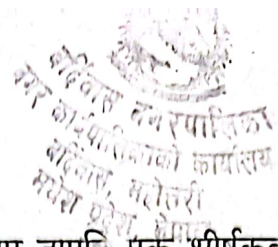 बर्दिबास नगरपालिका
नगर कार्यपालिकाको कार्यालय
बर्दिबास, महोत्तरी
मधेश प्रदेश, नेपाल